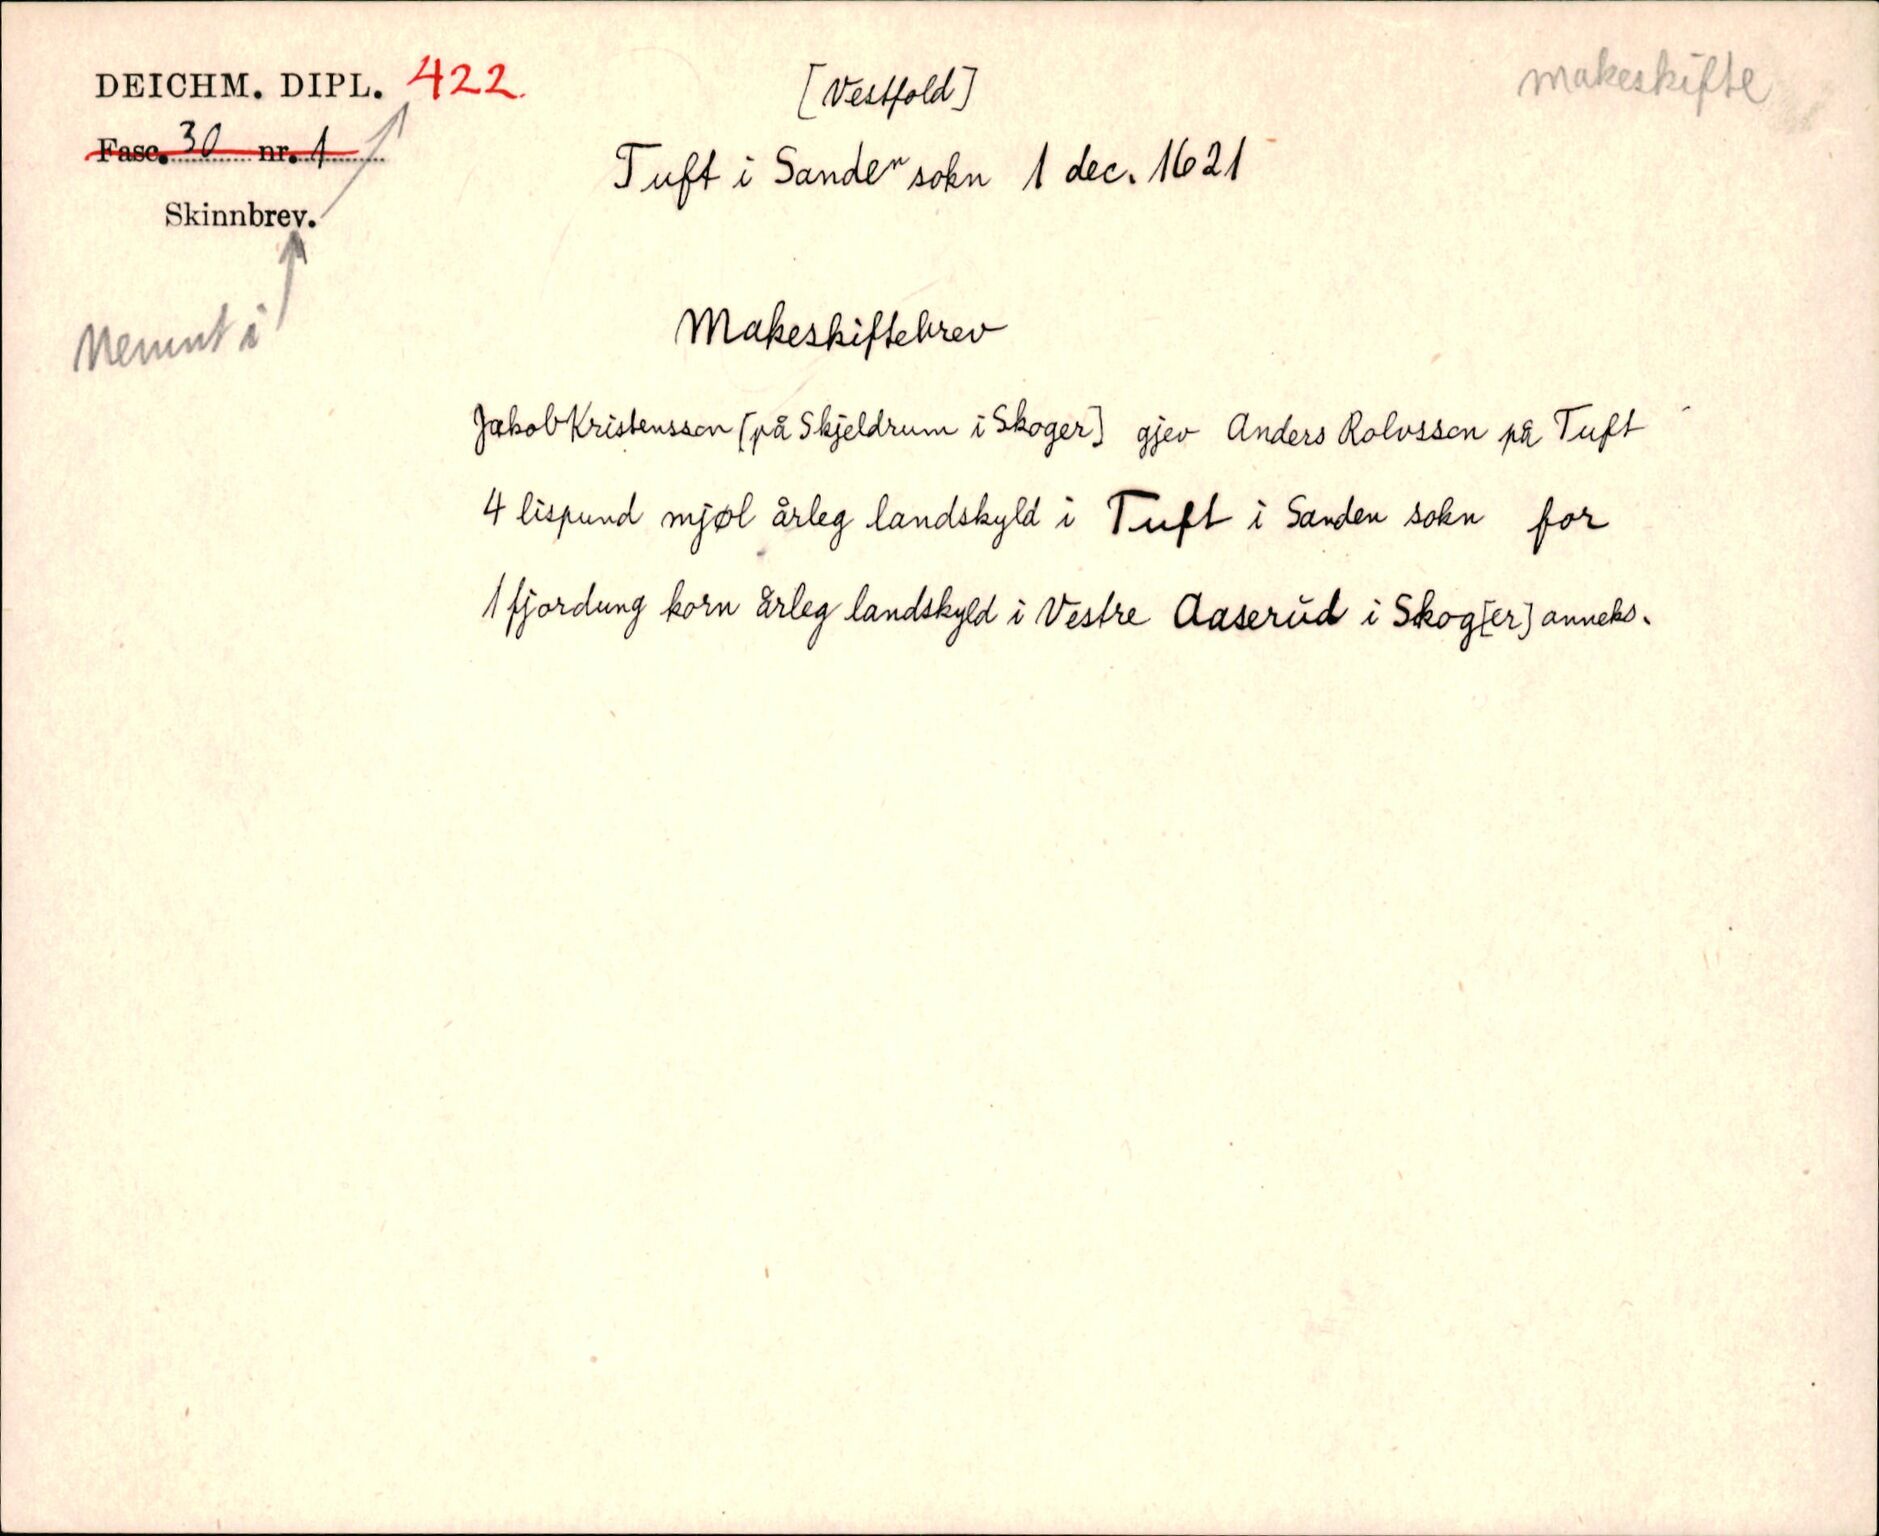 DEICHM. DIPL. 422.
[Vestfold]
makeskifte
Fasc. 30 nr. 1
Tuft i Sanden sokn 1 dec. 1621
Skinnbrev.
Nemnt i
Makeskiftebrev
Jakob Kristensson [på Skjeldrum i Skoger] gjev Anders Rolvsson på Tuft
4 lispund mjøl årleg landskyld i Tuft i Sanden sokn for
1 fjordung korn årleg landskyld i Vestre Aaserŭd i Skog[er] anneks.